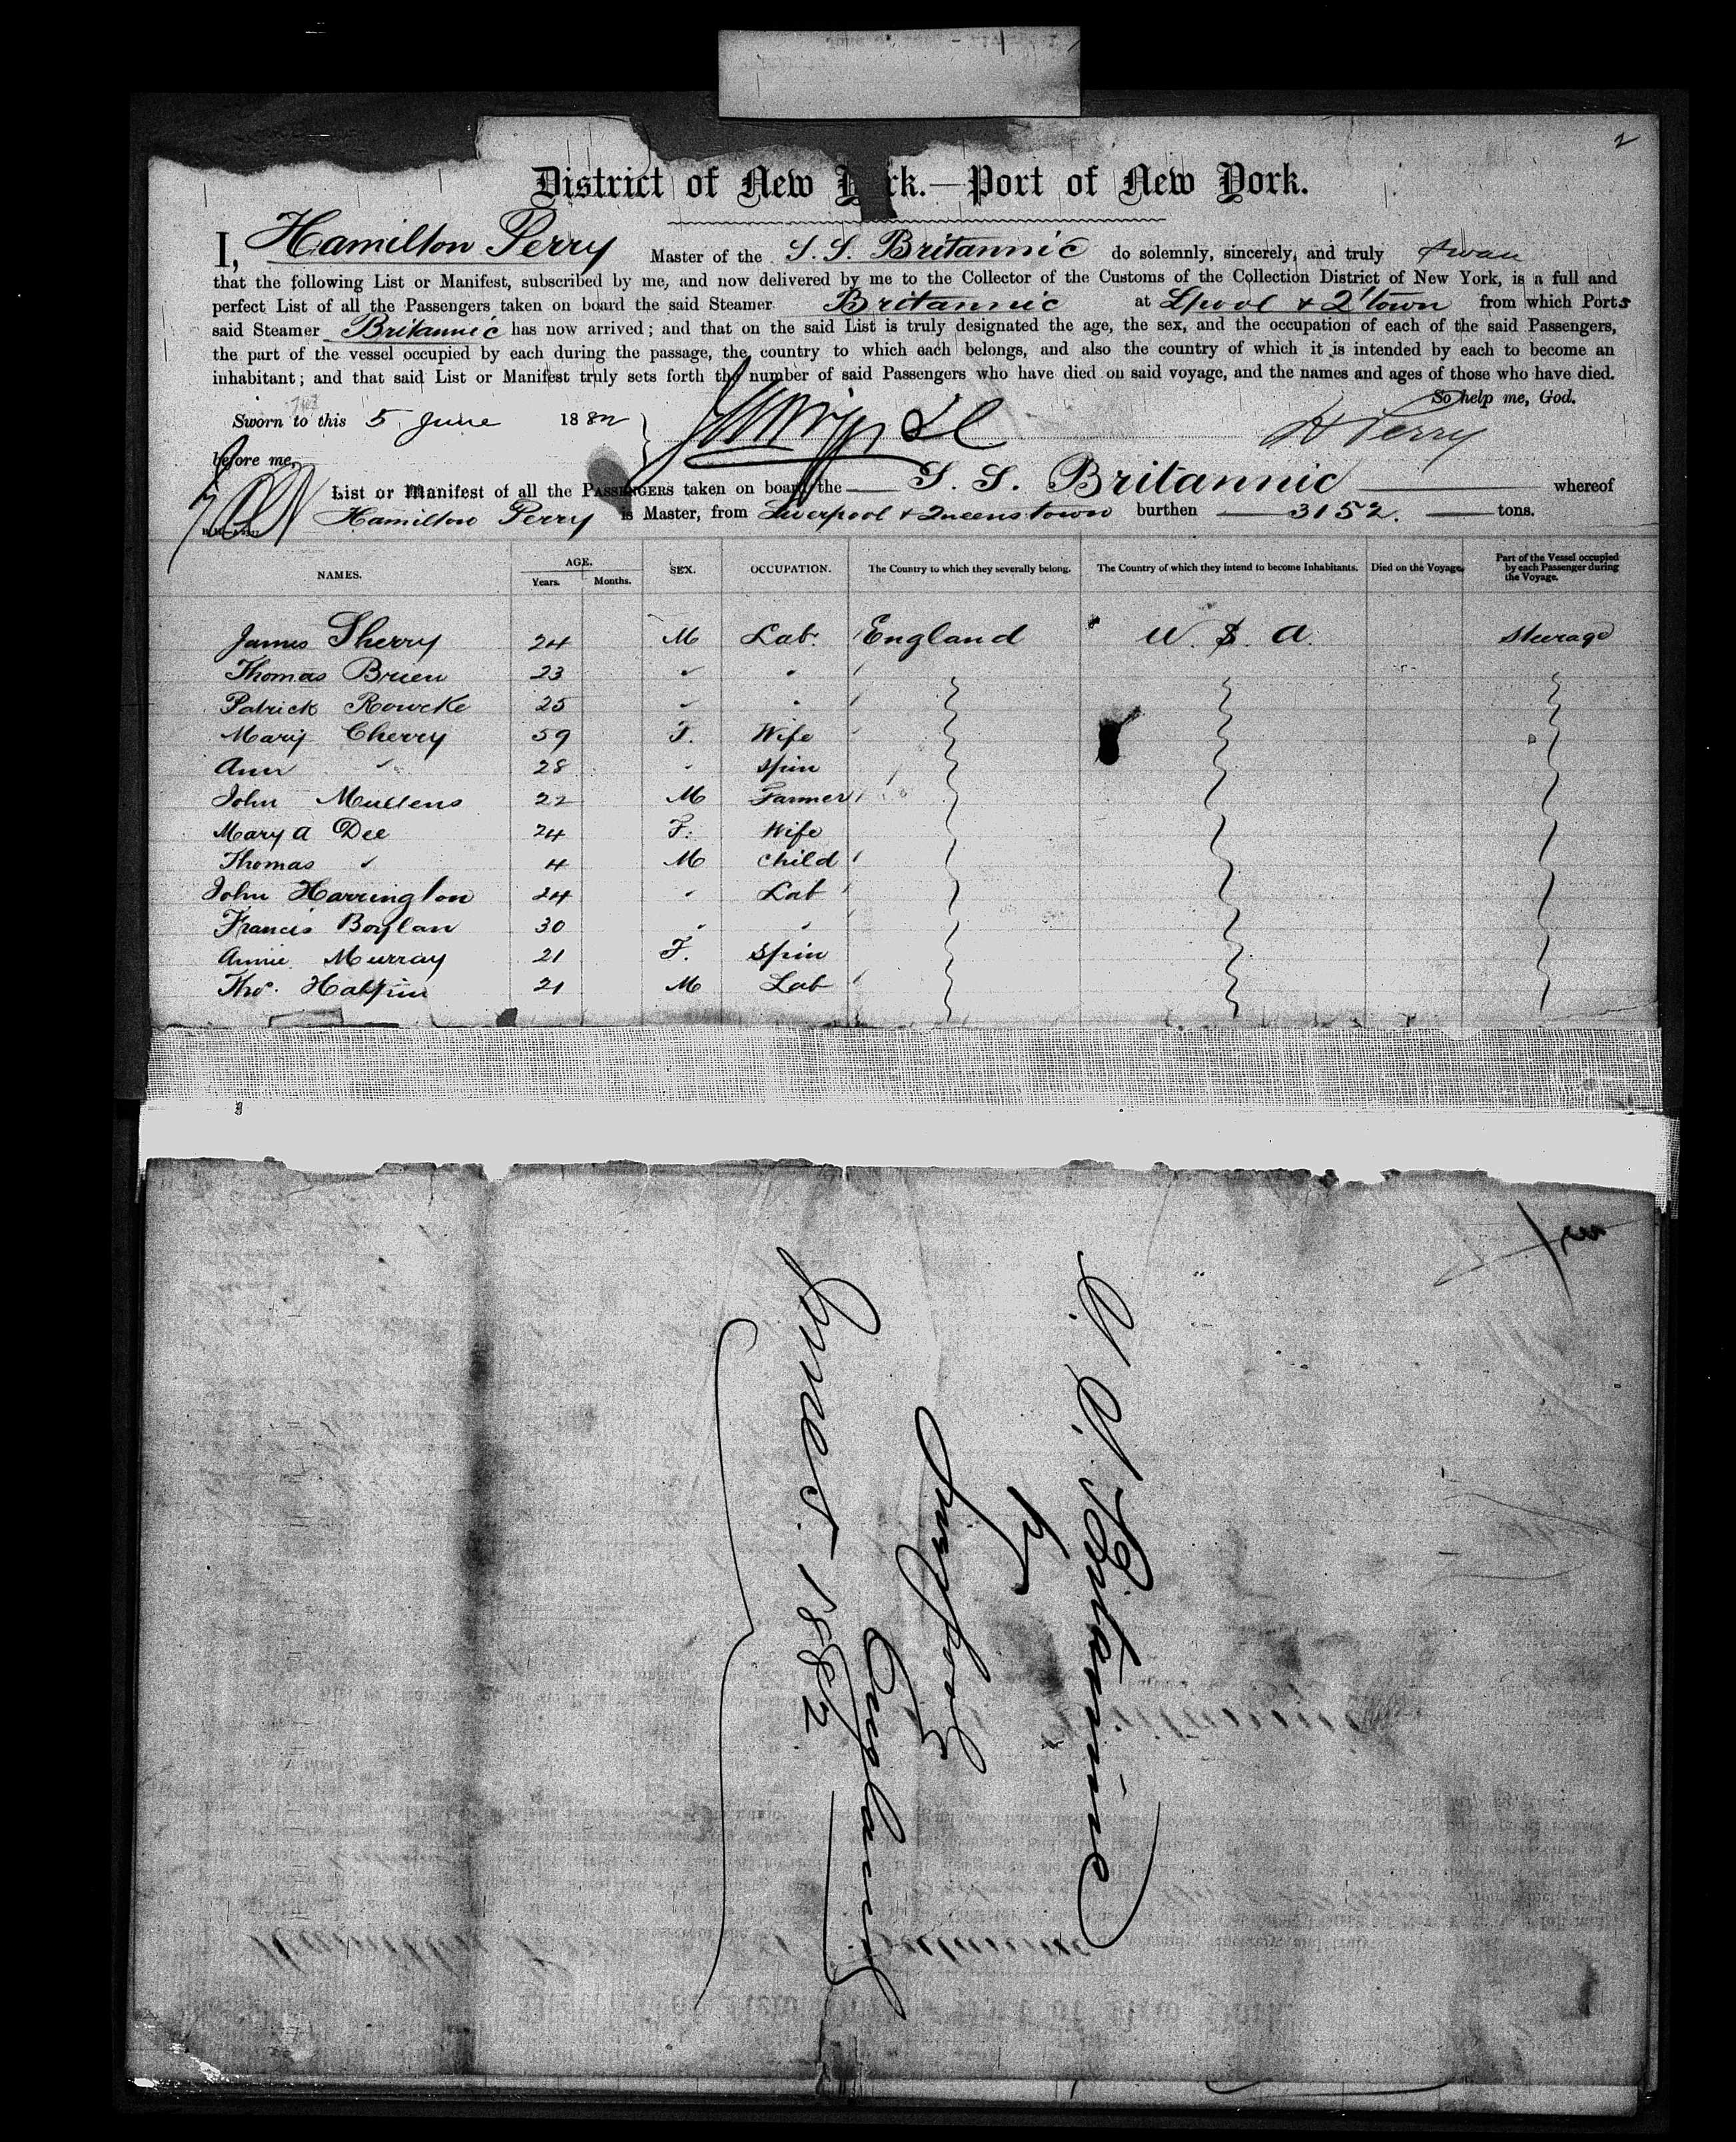 2
District of New Y rk.—Port of New York.
I, Hamilton Perry Master of the S. S. Britannic do solemnly, sincerely, and truly swear
that the following List or Manifest, subscribed by me, and now delivered by me to the Collector of the Customs of the Collection District of New York, is a full and
perfect List of all the Passengers taken on board the said Steamer Britannic at Lpool & Q'town from which Ports
said Steamer Britannic has now arrived; and that on the said List is truly designated the age, the sex, and the occupation of each of the said Passengers,
the part of the vessel occupied by each during the passage, the country to which each belongs, and also the country of which it is intended by each to become an
inhabitant; and that said List or Manifest truly sets forth the number of said Passengers who have died on said voyage, and the names and ages of those who have died.
So help me, God.
Sworn to this 5 June 1882
H Perry
before me,
List or Manifest of all the PASSENGERS taken on board the S. S. Britannic whereof
Hamilton Perry is Master, from Liverpool & Queenstown burthen 3152. tons.
NAMES. AGE. Years. Months. SEX. OCCUPATION. The Country to which they severally belong. The Country of which they intend to become Inhabitants. Died on the Voyage. Part of the Vessel occupied by each Passenger during the Voyage.
James Sherry 24 M Lab. England U. S. A. Steerage
Thomas Brien 23 " "
Patrick Rowcke 25 " "
Mary Cherry 59 F. Wife
Ann " 28 " Spin
John Mullens 22 M Farmer
Mary A Dee 24 F. Wife
Thomas " 4 M Child
John Harrington 24 " Lab
Francis Boylan 30 " "
Annie Murray 21 F. Spin
Thos. Halpin 21 M Lab
S. S. Britannic
fr
Liverpool
England
June 5. 1882